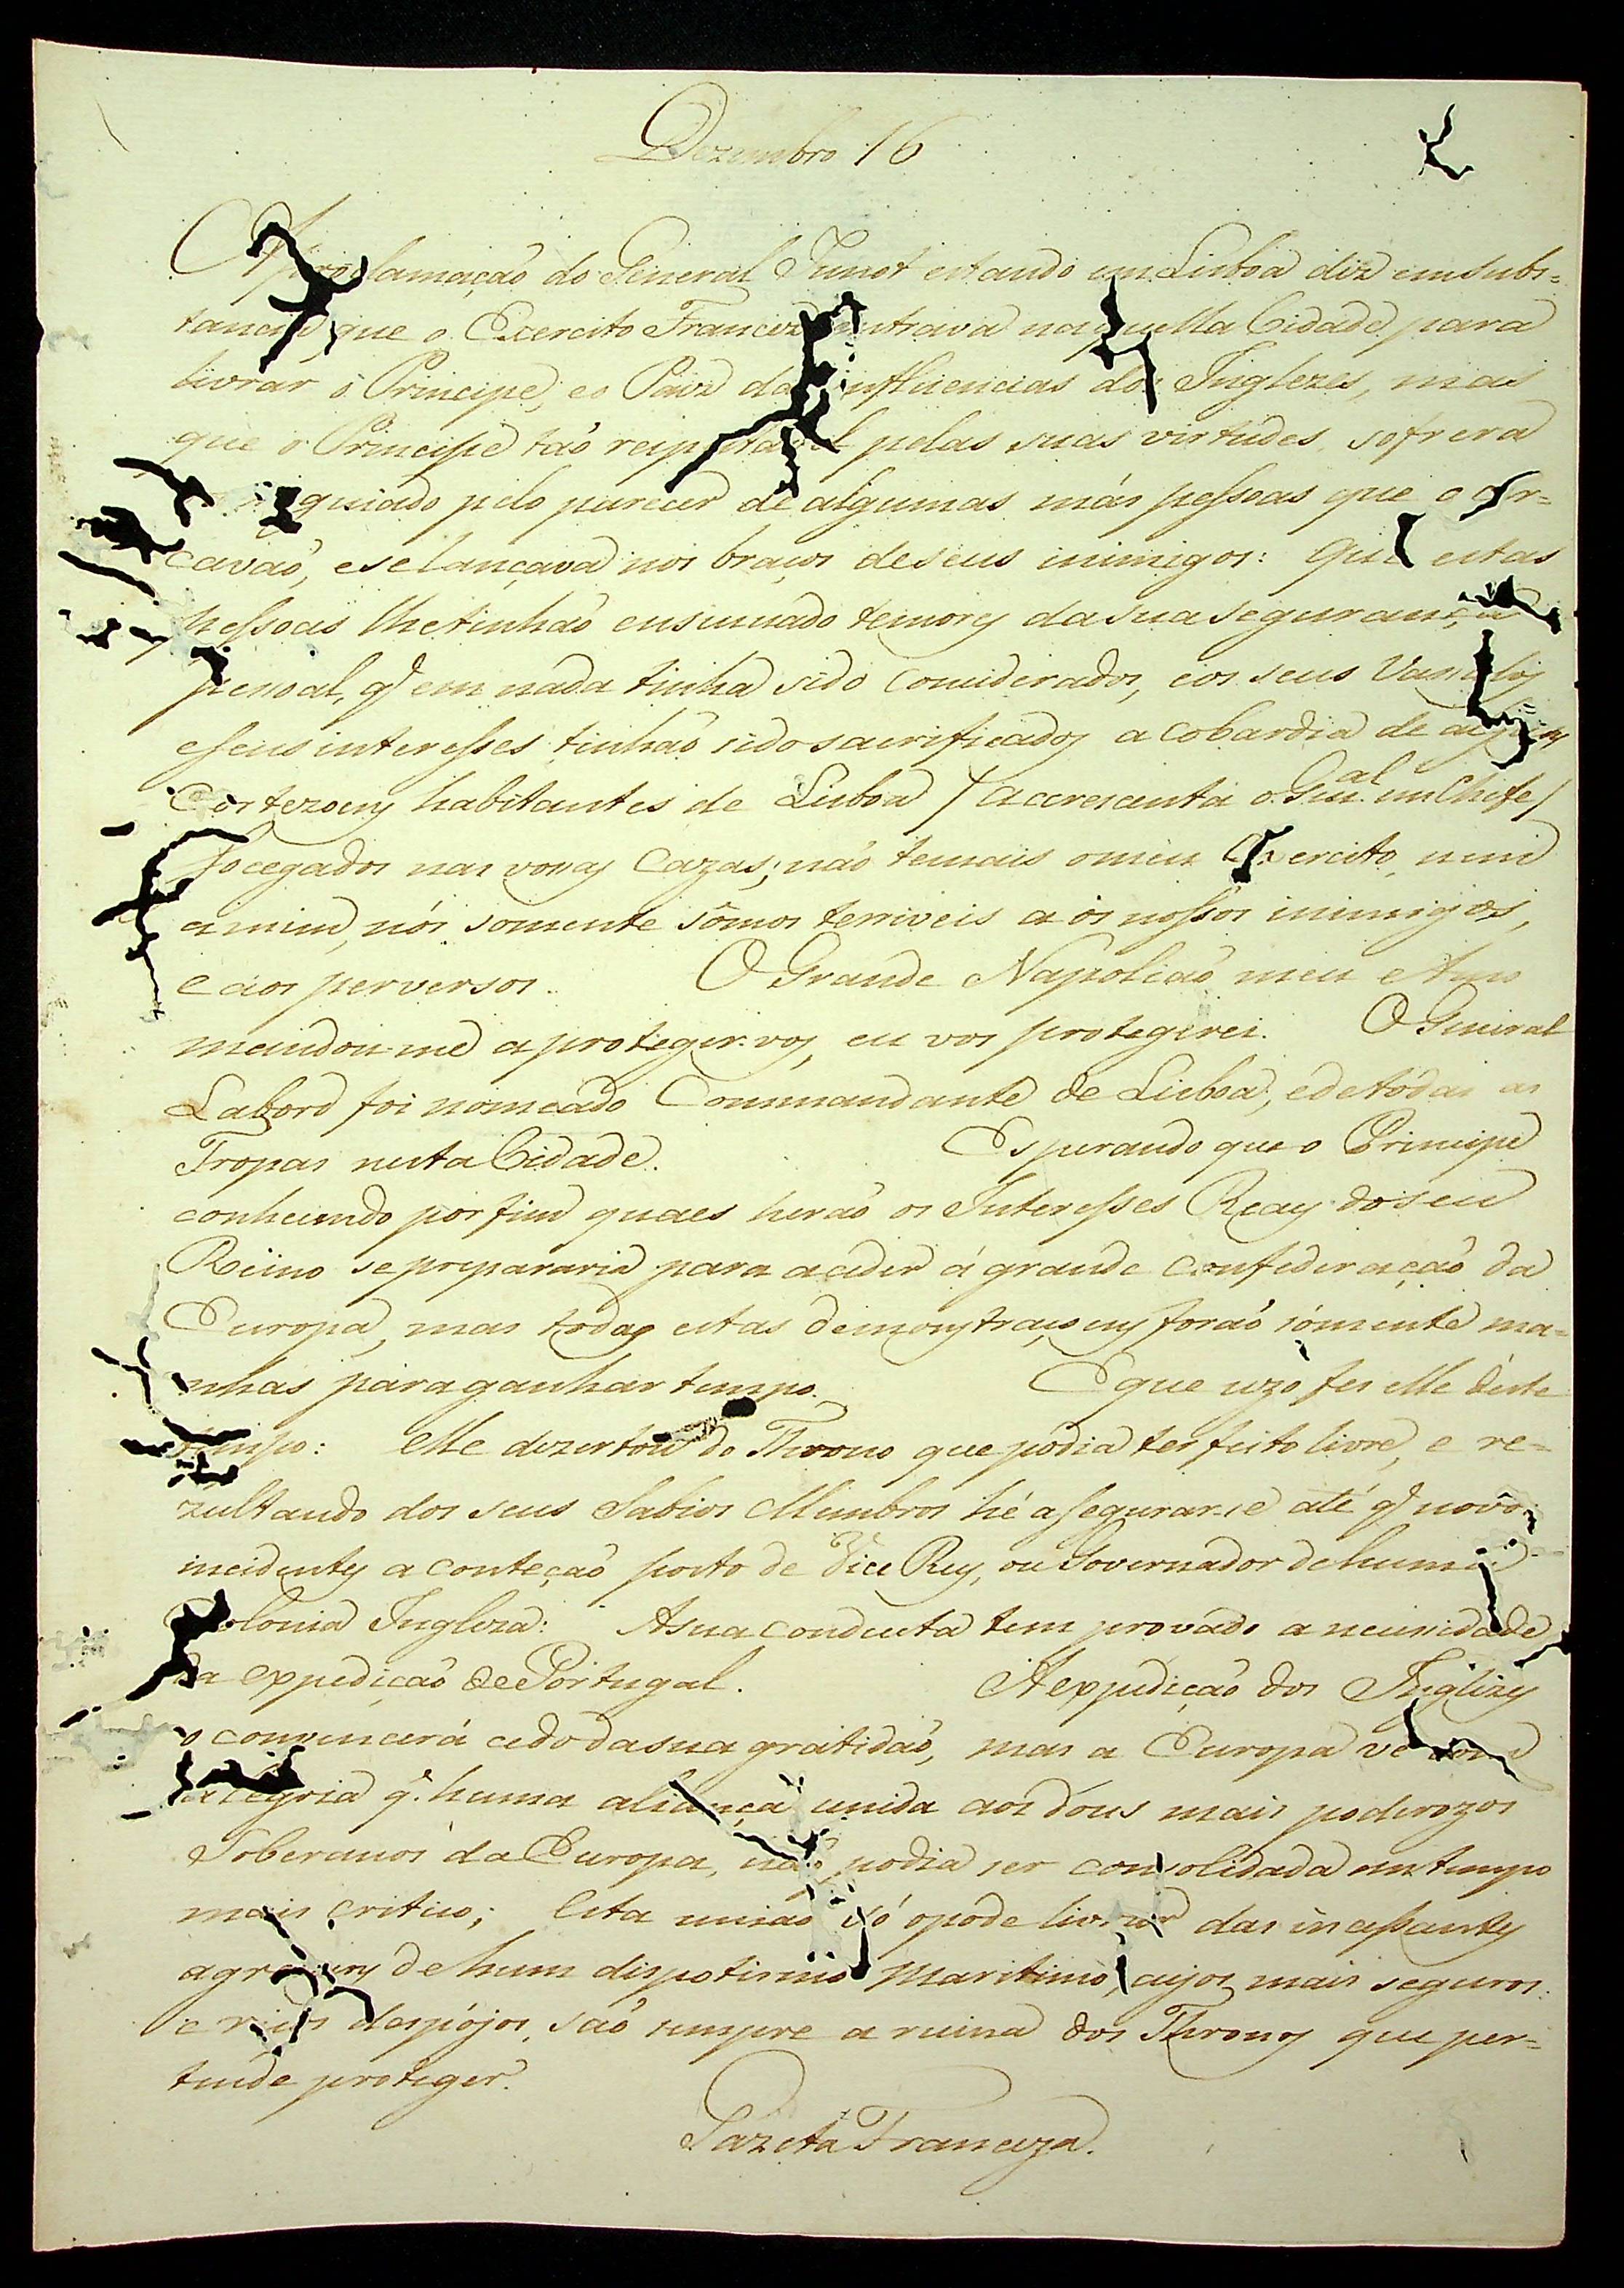 Dezembro 16
A proclamação do General Junot estando em Lisboa diz em subs=
tancia, que o Exercito Francez entrava naquella Cidade para
livrar o Principe, e o Paiz das influencias dos Inglezes, mas
que o Principe tão respeitavel pelas suas virtudes, sofrera
guiado pelo parecer de algumas más pessoas que o cer=
cavão, e se lançava nos braços de seus inimigos: Que estas
pessoas lhe tinhão ensinuado temores da sua segurança
pessoal, q̃ em nada tinha sido considerados, e os seus Vassalos
e seus interesses tinhão sido sacrificados a cobardia de alguns
Cortezoens habitantes de Lisboa / accrescenta o Gen.al em Chefe /
socegados nas vossas Cazas; não temais o meu Exercito, nem
a mim, nós somente sômos terriveis aos nossos inimigos,
e aos perversos. O Grande Napolião meu Amo
mandou-me a proteger-vos, eu vos protegerei. O General
Labord foi nomeado Commandante de Lisboa, e de tôdas as
Tropas nesta Cidade. Esperando que o Principe
conhecendo por fim quaes herão os Interesses Reaes do seu
Reino se prepararia para aceder á grande confideração da
Europa, mas todas estas demonstraçoens forão sómente ma=
nhas para ganhar tempo. E que uzo fes elle dêste
tempo: elle dezertou do Throno que podia ter feito livre, e re=
zultando dos seus Sabios Membros hé asegurar-se até q̃ novos
incidentes aconteção posto de Vice Rey, ou Governador de huma
Colonia Ingleza: A sua conducta tem provado a necessidade
da expedição de Portugal. A expedição dos Inglezes
o convencerá cedo da sua gratidão, mas a Europa vê com
alegria q̃. huma aliança unida aos dous mais poderozos
Soberanos da Europa, não podia ser consolidada em tempo
mais critico; Esta união só o póde livrar das incessantes
agressoens de hum dispotismo Maritimo, cujos mais seguros
e ricos despójos, são sempre a ruina dos Thronos que per=
tende proteger.
Gazeta Franceza.